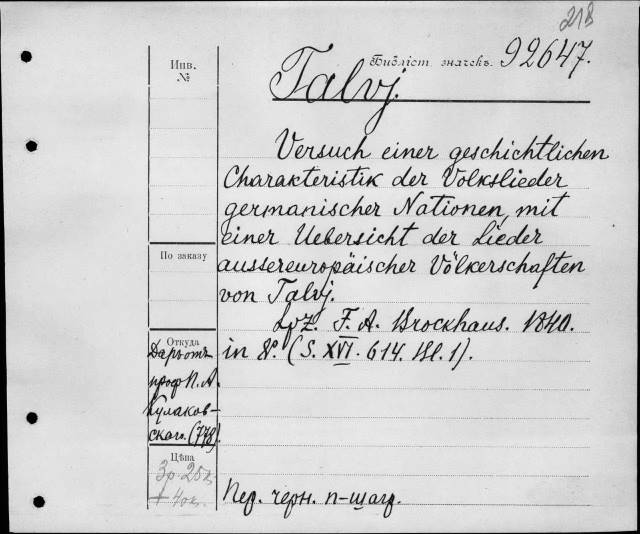 218
Библіот. значекъ. 92647.
Talvj.
Инв.
№
Versuch einer geschichtlichen
Charakteristik der Volkslieder
germanischer Nationen, mit
einer Uebersicht der Lieder
aussereuropäischer Völkerschaften
von Talvj.
Lpz. F. A. Brockhaus. 1840.
in 8º. (S. XVI. 614. Bl. 1).
По заказу
Откуда
Даръ отъ
проф П. А.
Кулаков-
скаго. (778).
Цѣна
3р. 25к.
+ 40к.
Пер. черн. п-шагр.